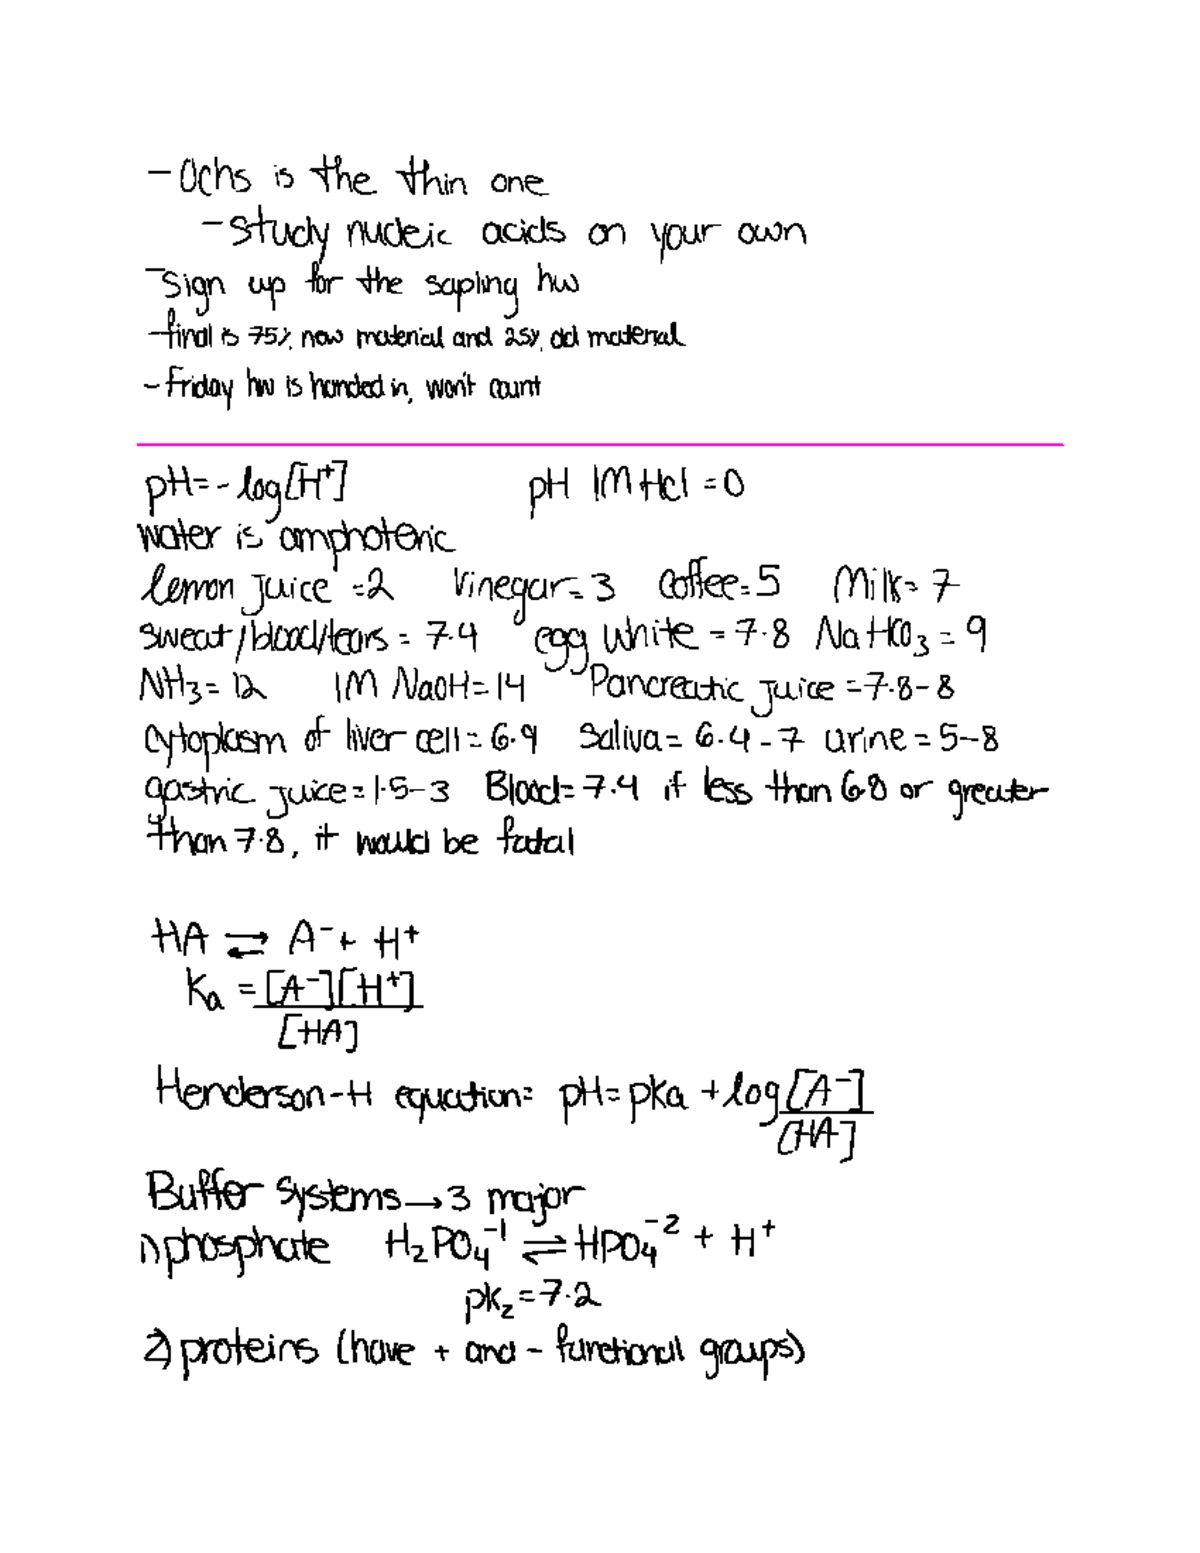 - Ochs is the thin one
- study nucleic acids on your own
- Sign up for the sapling hw
- final is 75% new material and 25% old material
- Friday hw is handed in, won't count
pH = - log[H⁺] pH 1M HCl = 0
water is amphoteric
lemon juice = 2 Vinegar = 3 Coffee = 5 Milk = 7
sweat/blood/tears = 7.4 egg white = 7.8 NaHCO₃ = 9
NH₃ = 12 1M NaOH = 14 Pancreatic juice = 7.8-8
cytoplasm of liver cell = 6.9 Saliva = 6.4-7 urine = 5-8
gastric juice = 1.5-3 Blood = 7.4 if less than 6.8 or greater
than 7.8, it would be fatal
HA ⇌ A⁻ + H⁺
Ka = [A⁻][H⁺]
[HA]
Henderson-H equation = pH = pKa + log [A⁻]
[HA]
Buffer systems → 3 major
1) phosphate H₂PO₄⁻¹ ⇌ HPO₄⁻² + H⁺
pk₂ = 7.2
2) proteins (have + and - functional groups)